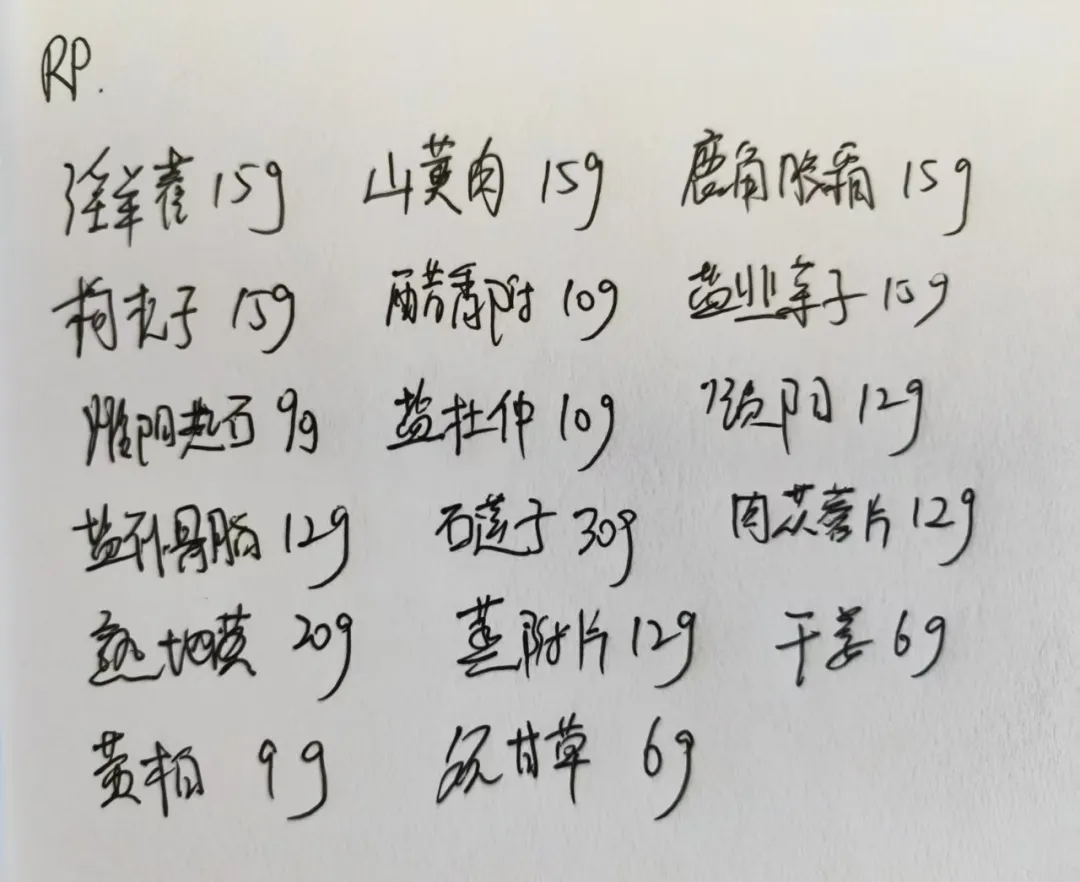 RP.
淫羊藿 15g 山萸肉 15g 鹿角胶霜 15g
枸杞子 15g 醋香附 10g 盐韭菜子 15g
煅阳起石 9g 盐杜仲 10g 锁阳 12g
盐补骨脂 12g 石莲子 30g 肉苁蓉片 12g
熟地黄 20g 蒸附片 12g 干姜 6g
黄柏 9g 炙甘草 6g